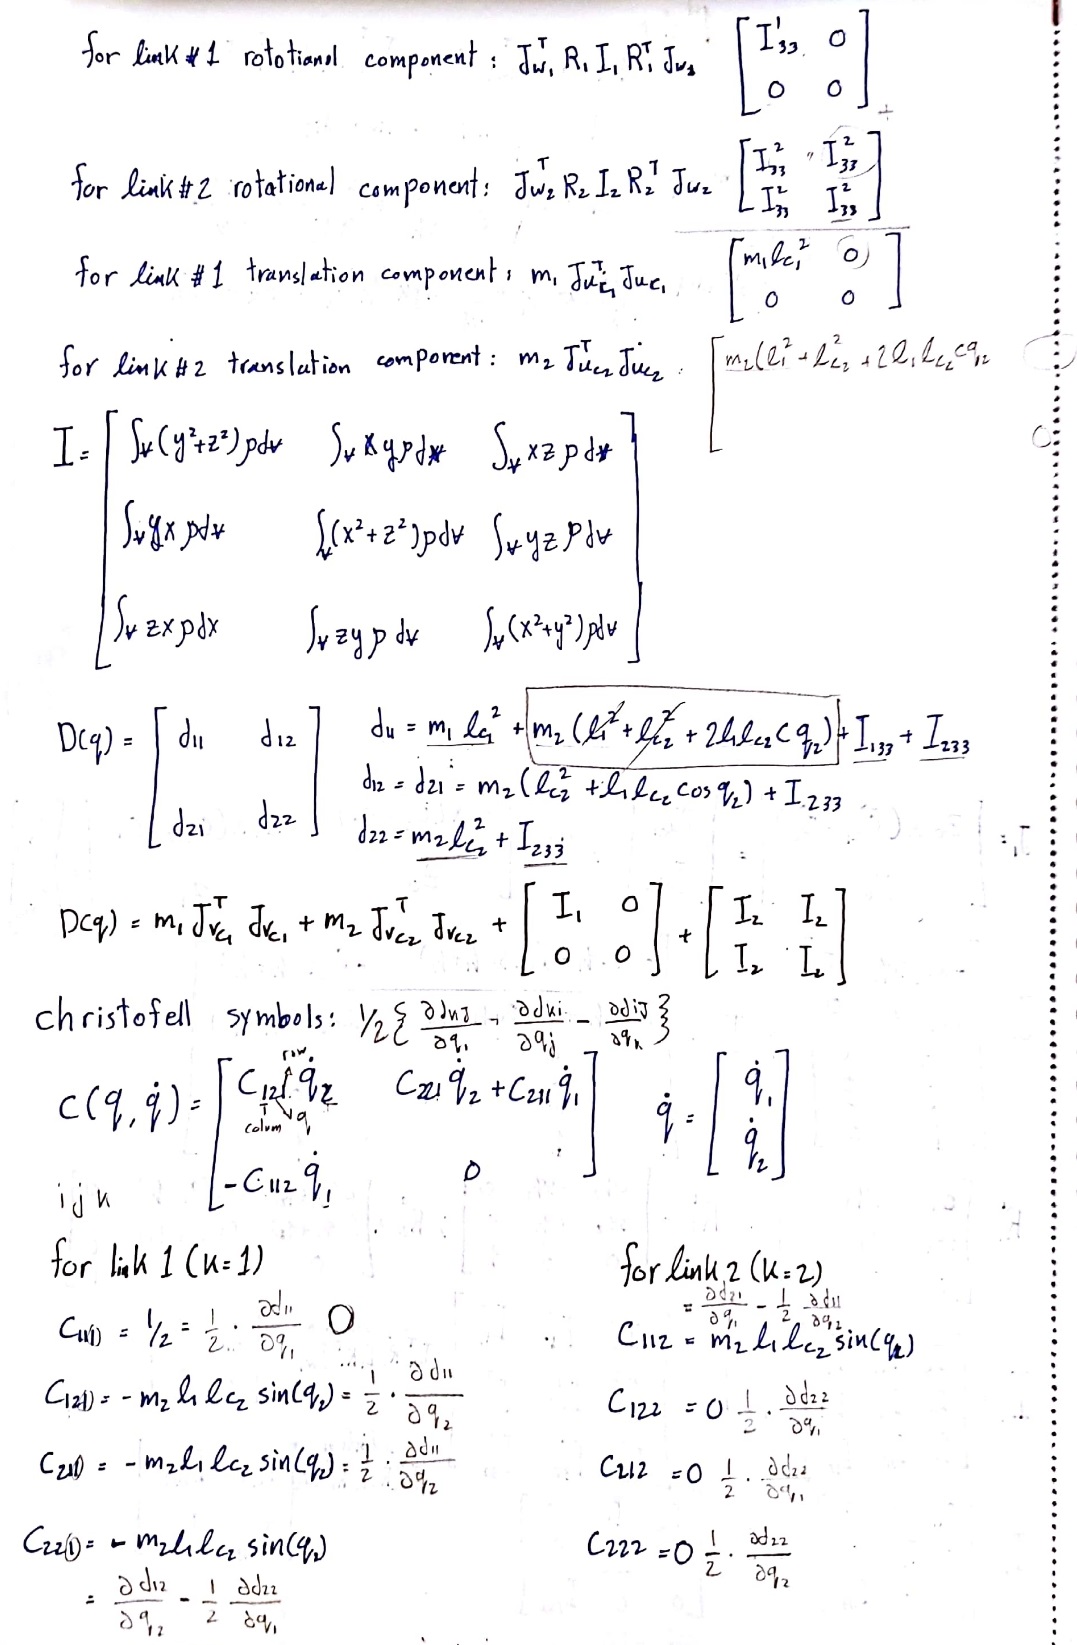 for link #1 rotational component : Jw₁ᵀ R₁ I₁ R₁ᵀ Jw₁ [I¹₃₃ 0
0 0]
for link #2 rotational component: Jw₂ᵀ R₂ I₂ R₂ᵀ Jw₂ [I²₃₃ I²₃₃
I²₃₃ I²₃₃]
for link #1 translation component: m₁ Jvc₁ᵀ Jvc₁ [m₁lc₁² 0
0 0]
for link #2 translation component: m₂ Jvc₂ᵀ Jvc₂ [m₂(l₁²+lc₂²+2l₁lc₂cq₂
I = [∫v(y²+z²)ρdv ∫v xyρdv ∫v xzρdv
∫v yxρdv ∫v(x²+z²)ρdv ∫v yzρdv
∫v zxρdx ∫v zyρdv ∫v(x²+y²)ρdv]
D(q) = [d₁₁ d₁₂ d₁₁ = m₁lc₁² + m₂(l₁²+lc₂²+2l₁lc₂cq₂) + I₁₃₃ + I₂₃₃
d₁₂ = d₂₁ = m₂(lc₂²+l₁lc₂cosq₂) + I₂₃₃
d₂₁ d₂₂] d₂₂ = m₂lc₂² + I₂₃₃
D(q) = m₁ Jvc₁ᵀ Jvc₁ + m₂ Jvc₂ᵀ Jvc₂ + [I₁ 0 + [I₂ I₂
0 0] I₂ I₂]
christofell symbols: ½{∂dkj/∂qi - ∂dki/∂qj - ∂dij/∂qk}
row
C(q,q̇) = [C₁₂₁q̇₂ C₂₂₁q̇₂+C₂₁₁q̇₁] q̇ = [q̇₁
colum q
-C₁₁₂q̇₁ 0] q̇₂]
ijk
for link 1 (k=1) for link 2 (k=2)
= ∂d₂₁/∂q₁ - ½ ∂d₁₁/∂q₂
C₁₁₁ = ½ = ½ · ∂d₁₁/∂q₁ 0 C₁₁₂ = m₂l₁lc₂sin(q₂)
C₁₂₁ = -m₂l₁lc₂ sin(q₂) = ½ · ∂d₁₁/∂q₂ C₁₂₂ = 0 ½ · ∂d₂₂/∂q₁
C₂₁₁ = -m₂l₁lc₂ sin(q₂) = ½ · ∂d₁₁/∂q₂ C₂₁₂ = 0 ½ · ∂d₂₂/∂q₁
C₂₂₁ = -m₂l₁lc₂ sin(q₂) C₂₂₂ = 0 ½ · ∂d₂₂/∂q₂
= ∂d₁₂/∂q₂ - ½ ∂d₂₂/∂q₁